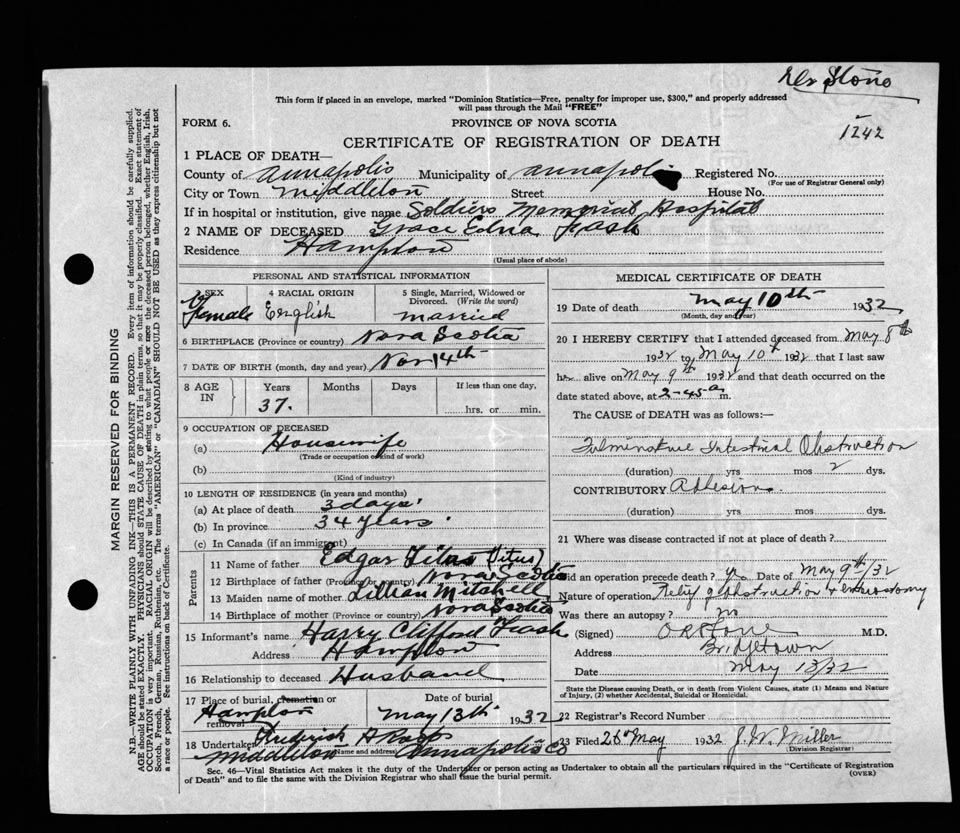 Dr Stone
This form if placed in an envelope, marked "Dominion Statistics—Free, penalty for improper use, $300," and properly addressed
will pass through the Mail "FREE"
FORM 6.
PROVINCE OF NOVA SCOTIA
1242
CERTIFICATE OF REGISTRATION OF DEATH
1 PLACE OF DEATH—
County of Annapolis Municipality of Annapolis Registered No.
(For use of Registrar General only)
City or Town Middleton Street House No.
If in hospital or institution, give name Soldiers Memorial Hospital
2 NAME OF DECEASED Grace Edna Fash
Residence Hampton
(Usual place of abode)
PERSONAL AND STATISTICAL INFORMATION
3 SEX 4 RACIAL ORIGIN 5 Single, Married, Widowed or
Divorced. (Write the word)
Female English married
6 BIRTHPLACE (Province or country) Nova Scotia
7 DATE OF BIRTH (month, day and year) Nov 14th
8 AGE IN Years Months Days If less than one day,
37. hrs. or min.
9 OCCUPATION OF DECEASED
(a) Housewife
(Trade or occupation or kind of work)
(b)
(Kind of industry)
10 LENGTH OF RESIDENCE (in years and months)
(a) At place of death 3 days
(b) In province 34 years
(c) In Canada (if an immigrant)
Parents
11 Name of father Edgar Titus (Titus)
12 Birthplace of father (Province or country) Nova Scotia
13 Maiden name of mother Lillian Mitchell
14 Birthplace of mother (Province or country) Nova Scotia
15 Informant's name Harry Clifford Fash
Address Hampton
16 Relationship to deceased Husband
17 Place of burial, cremation or Date of burial
removal Hampton May 13th 1932
18 Undertaker Frederick A
Middleton (Name and address) Annapolis Co
MEDICAL CERTIFICATE OF DEATH
19 Date of death May 10th 1932
(Month, day and year)
20 I HEREBY CERTIFY that I attended deceased from May 8th
1932 to May 10th 1932 that I last saw
her alive on May 9th 1932 and that death occurred on the
date stated above, at 2-45 a m.
The CAUSE OF DEATH was as follows:—
Fulminative Intestinal Obstruction
(duration) yrs mos 2 dys.
CONTRIBUTORY Adhesions
(duration) yrs mos dys.
21 Where was disease contracted if not at place of death?
Did an operation precede death? yes Date of May 9th/32
Nature of operation Relief of obstruction & enterostomy
Was there an autopsy? no
(Signed) M.D.
Address Bridgetown
Date May 13/32
State the Disease causing Death, or in death from Violent Causes, state (1) Means and Nature
of Injury, (2) whether Accidental, Suicidal or Homicidal.
22 Registrar's Record Number
23 Filed 26th May 1932 J. W. Miller
(Division Registrar)
Sec. 46—Vital Statistics Act makes it the duty of the Undertaker or person acting as Undertaker to obtain all the particulars required in the "Certificate of Registration
of Death" and to file the same with the Division Registrar who shall issue the burial permit.
(OVER)
MARGIN RESERVED FOR BINDING
N.B.—WRITE PLAINLY WITH UNFADING INK—THIS IS A PERMANENT RECORD. Every item of information should be carefully supplied.
AGE should be stated EXACTLY. PHYSICIANS should STATE CAUSE OF DEATH in plain terms, so that it may be properly classified. Exact statement of
OCCUPATION is very important. RACIAL ORIGIN will be described by stating to what people or race the deceased person belonged, whether English, Irish,
Scotch, French, German, Russian, Ruthenian, etc. The terms "AMERICAN" or "CANADIAN" SHOULD NOT BE USED as they express citizenship but not
a race or people. See instructions on back of Certificate.